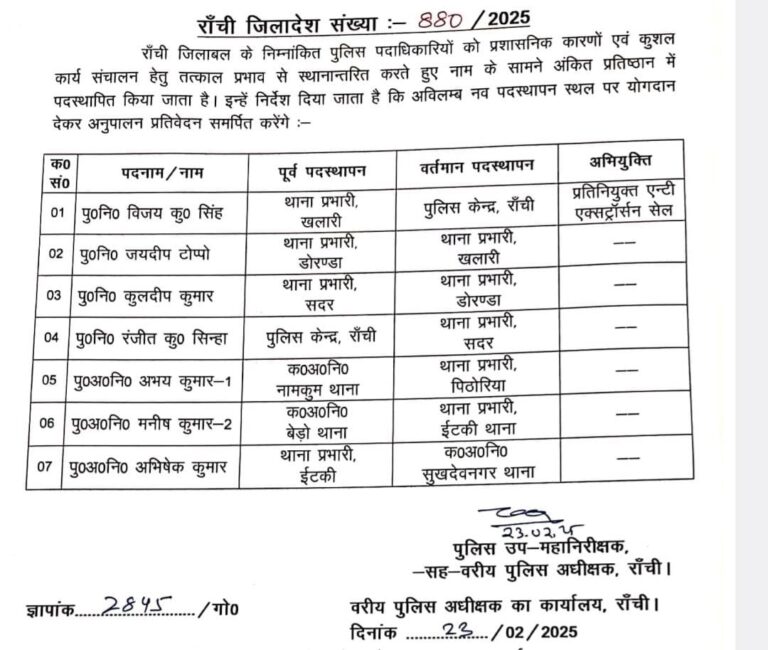 राँची जिलादेश संख्या :– 880 / 2025
राँची जिलाबल के निम्नांकित पुलिस पदाधिकारियों को प्रशासनिक कारणों एवं कुशल
कार्य संचालन हेतु तत्काल प्रभाव से स्थानान्तरित करते हुए नाम के सामने अंकित प्रतिष्ठान में
पदस्थापित किया जाता है। इन्हें निर्देश दिया जाता है कि अविलम्ब नव पदस्थापन स्थल पर योगदान
देकर अनुपालन प्रतिवेदन समर्पित करेंगे :–
क0 सं0 पदनाम/नाम पूर्व पदस्थापन वर्तमान पदस्थापन अभियुक्ति
01 पु0नि0 विजय कु0 सिंह थाना प्रभारी, खलारी पुलिस केन्द्र, राँची प्रतिनियुक्त एन्टी एक्सट्रॉर्सन सेल
02 पु0नि0 जयदीप टोप्पो थाना प्रभारी, डोरण्डा थाना प्रभारी, खलारी —
03 पु0नि0 कुलदीप कुमार थाना प्रभारी, सदर थाना प्रभारी, डोरण्डा —
04 पु0नि0 रंजीत कु0 सिन्हा पुलिस केन्द्र, राँची थाना प्रभारी, सदर —
05 पु0अ0नि0 अभय कुमार–1 क0अ0नि0 नामकुम थाना थाना प्रभारी, पिठोरिया —
06 पु0अ0नि0 मनीष कुमार–2 क0अ0नि0 बेड़ो थाना थाना प्रभारी, ईटकी थाना —
07 पु0अ0नि0 अभिषेक कुमार थाना प्रभारी, ईटकी क0अ0नि0 सुखदेवनगर थाना —
23.02.25
पुलिस उप–महानिरीक्षक,
–सह–वरीय पुलिस अधीक्षक, राँची।
ज्ञापांक.....2845...../गो0 वरीय पुलिस अधीक्षक का कार्यालय, राँची।
दिनांक .....23..../02/2025